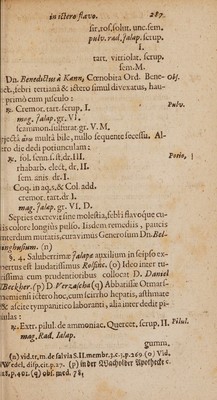 in ictero flavo. 287.
sir. ros. solut. unc. sem.
pulv. rad. jalap. scrup.
I.
tart. vitriolat. scrup.
sem. M.
Dn. Benedictus à Kann, Cœnobita Ord. Bene- Obs.
dict. febri tertianâ & ictero simul divexatus, hau-
primò cum jusculo:
℞. Cremor. tart. scrup. I. Pulv.
mag. jalap. gr. VI.
scammon. sulfurat. gr. V. M.
multâ bile, nullo sequente
die dedi potiunculam:
℞. fol. senn. s. st. dr. III. Potio,
rhabarb. elect. dr. II
sem. anis. dr. I.
Coq. in aq. s, & Col. add.
cremor. tart. dr I.
mag. jalap. gr. VI. D.
Septies excrevit sine molestia, febri flavoque cu-
tis colore longiùs pulso. Iisdem remediis, paucis
interdum muratis, curavimus Generosum Dn. Bel-
linghusium. (n)
§. 4. Saluberrimæ jalapæ auxilium in seipso ex-
pertus est laudatissimus Rolfinc. (o) Ideo inter tu-
tissima cum prudentioribus collocat D. Daniel
Beckher, (p) D Verzascha (q) Abbatissæ Otmars-
hemiensis ictero hoc, cum scirrho hepatis, asthmate
& ascite tympanitico laboranti, alia inter dedit pi-
lulas:
℞. Extr. pilul. de ammoniac. Quercet. scrup. II Pilul.
mag. Rad. Jalap.
gumm.
(n) vid. tr, m. de salvia S. II. membr. 3. c. 5. p. 269 (o) Vid.
Wedel. disp. cit. p. 27. (p) in der Wacholder Apotheck
p. 402. (q) obs. med. 78;